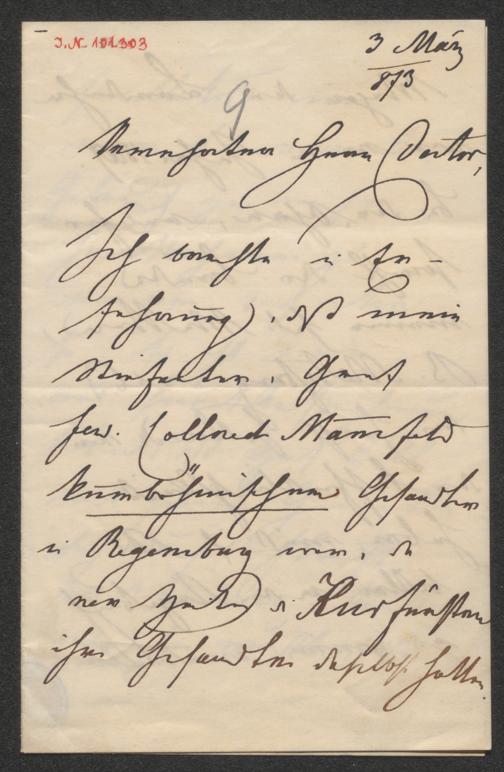 J.N. 101.303
3 März
873
9
Verehrtester Herr Doctor,
Ich brachte in Er-
fahrung, daß mein
Graf
Fer. Colloredo Mannsfeld
kurböhmischer Gesandter
in Regensburg war, da
Kurfürsten
ihre Gesandten daselbst hatten.